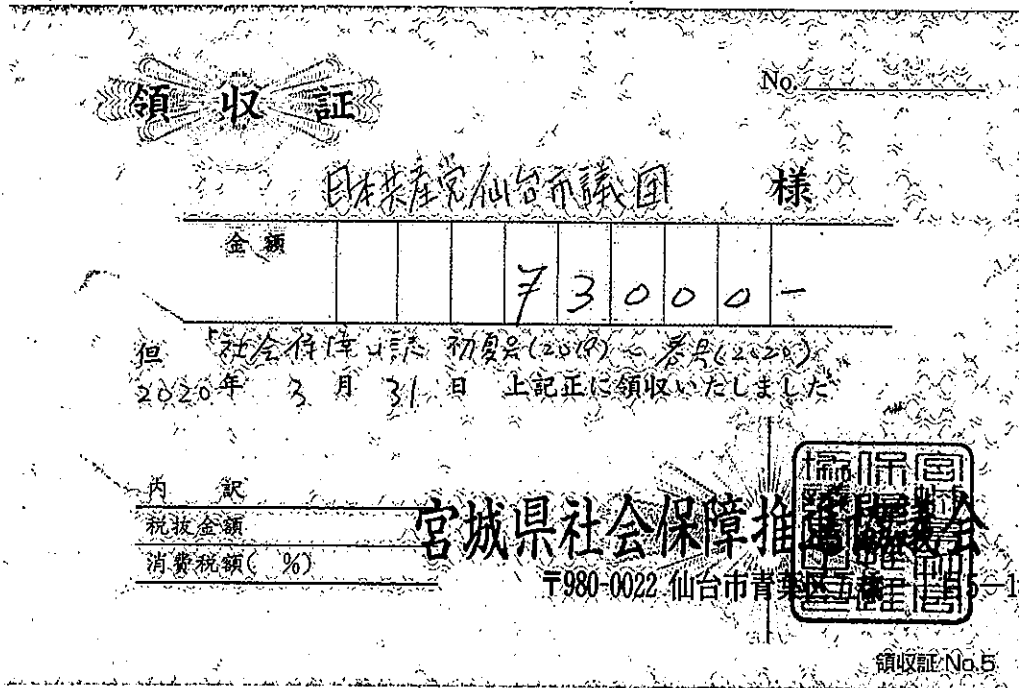 領収証
No.
日本共産党仙台市議団 様
金額 ¥3000-
但 「社会保障」誌 初夏号(2019)〜春号(2020)
2020年 3月 31日 上記正に領収いたしました
内 訳
税抜金額
消費税額( %)
宮城県社会保障推進協議会
〒980-0022 仙台市青葉区五橋一丁目5-1
領収証 No.5